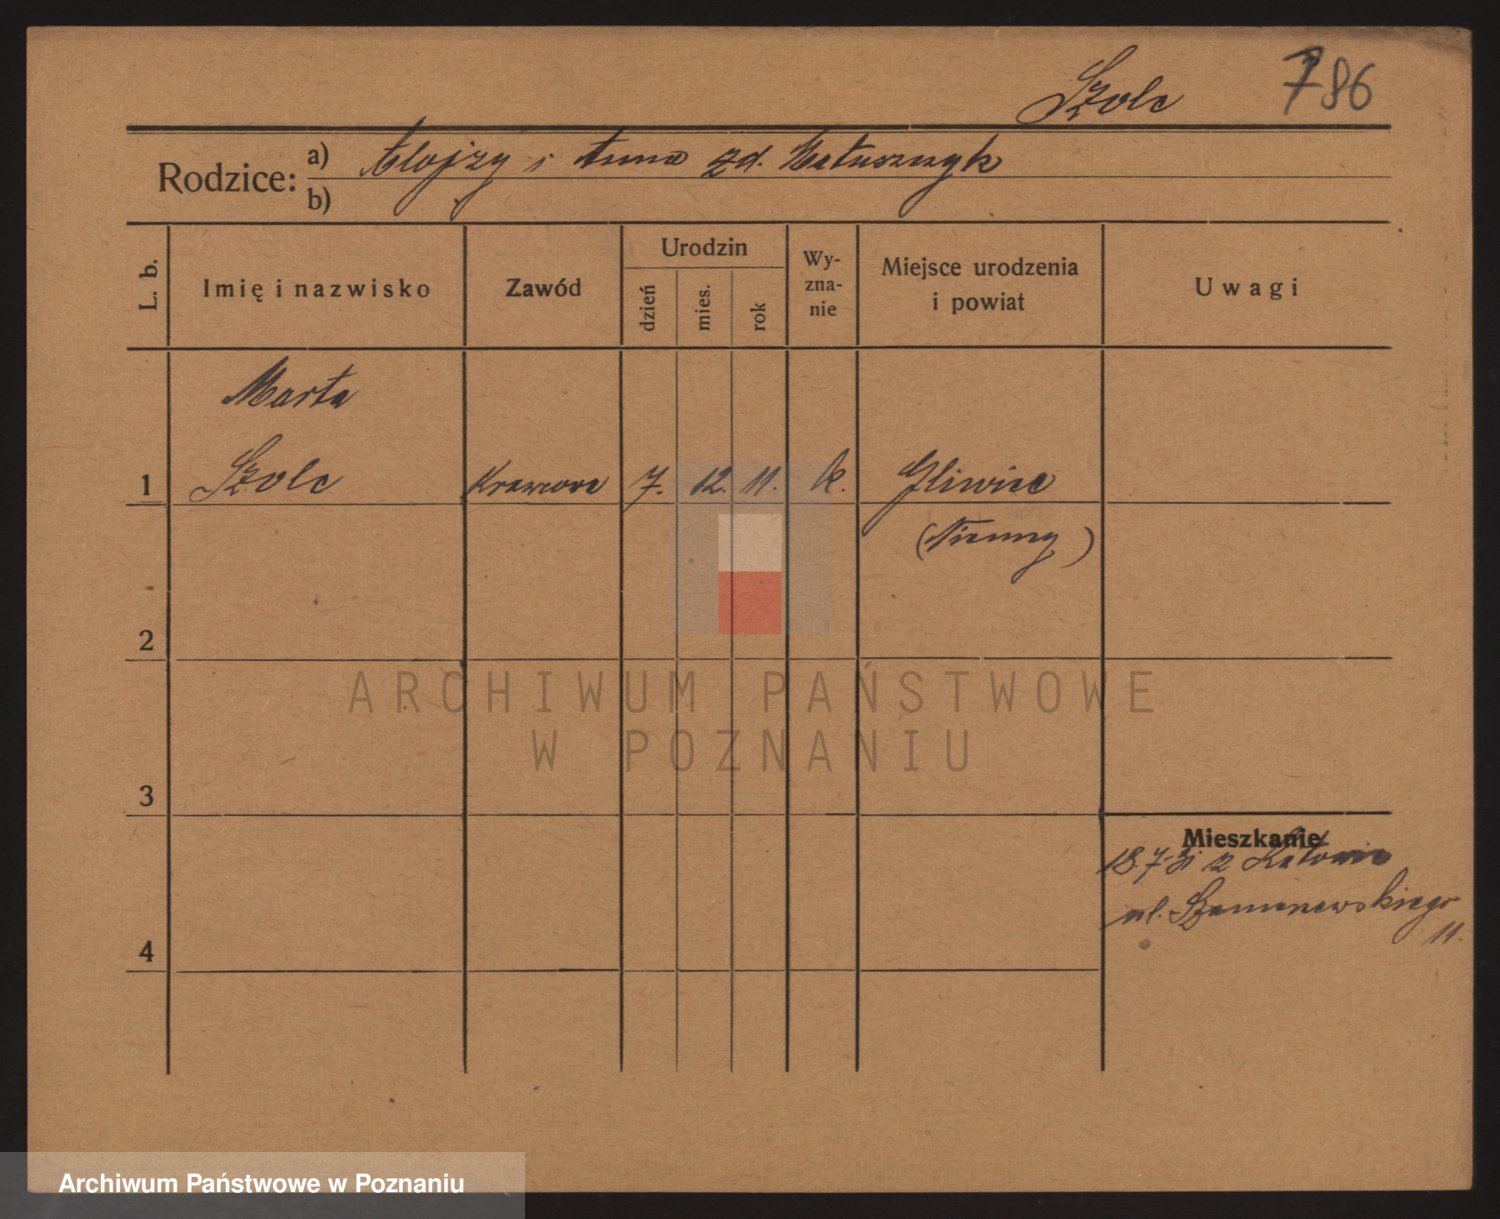 Szolc 786
Rodzice: a) Alojzy i Anna zd. Matuszczyk
b)
L. b. Imię i nazwisko Zawód Urodzin dzień mies. rok Wy-zna-nie Miejsce urodzenia i powiat Uwagi
Marta
1 Szolc Krawcowa 7. 12. 11. k. Gliwice
(Niemcy)
2
ARCHIWUM PAŃSTWOWE
W POZNANIU
3
Mieszkanie
18.7.31 z Katowic
ul.
11.
4
Archiwum Państwowe w Poznaniu